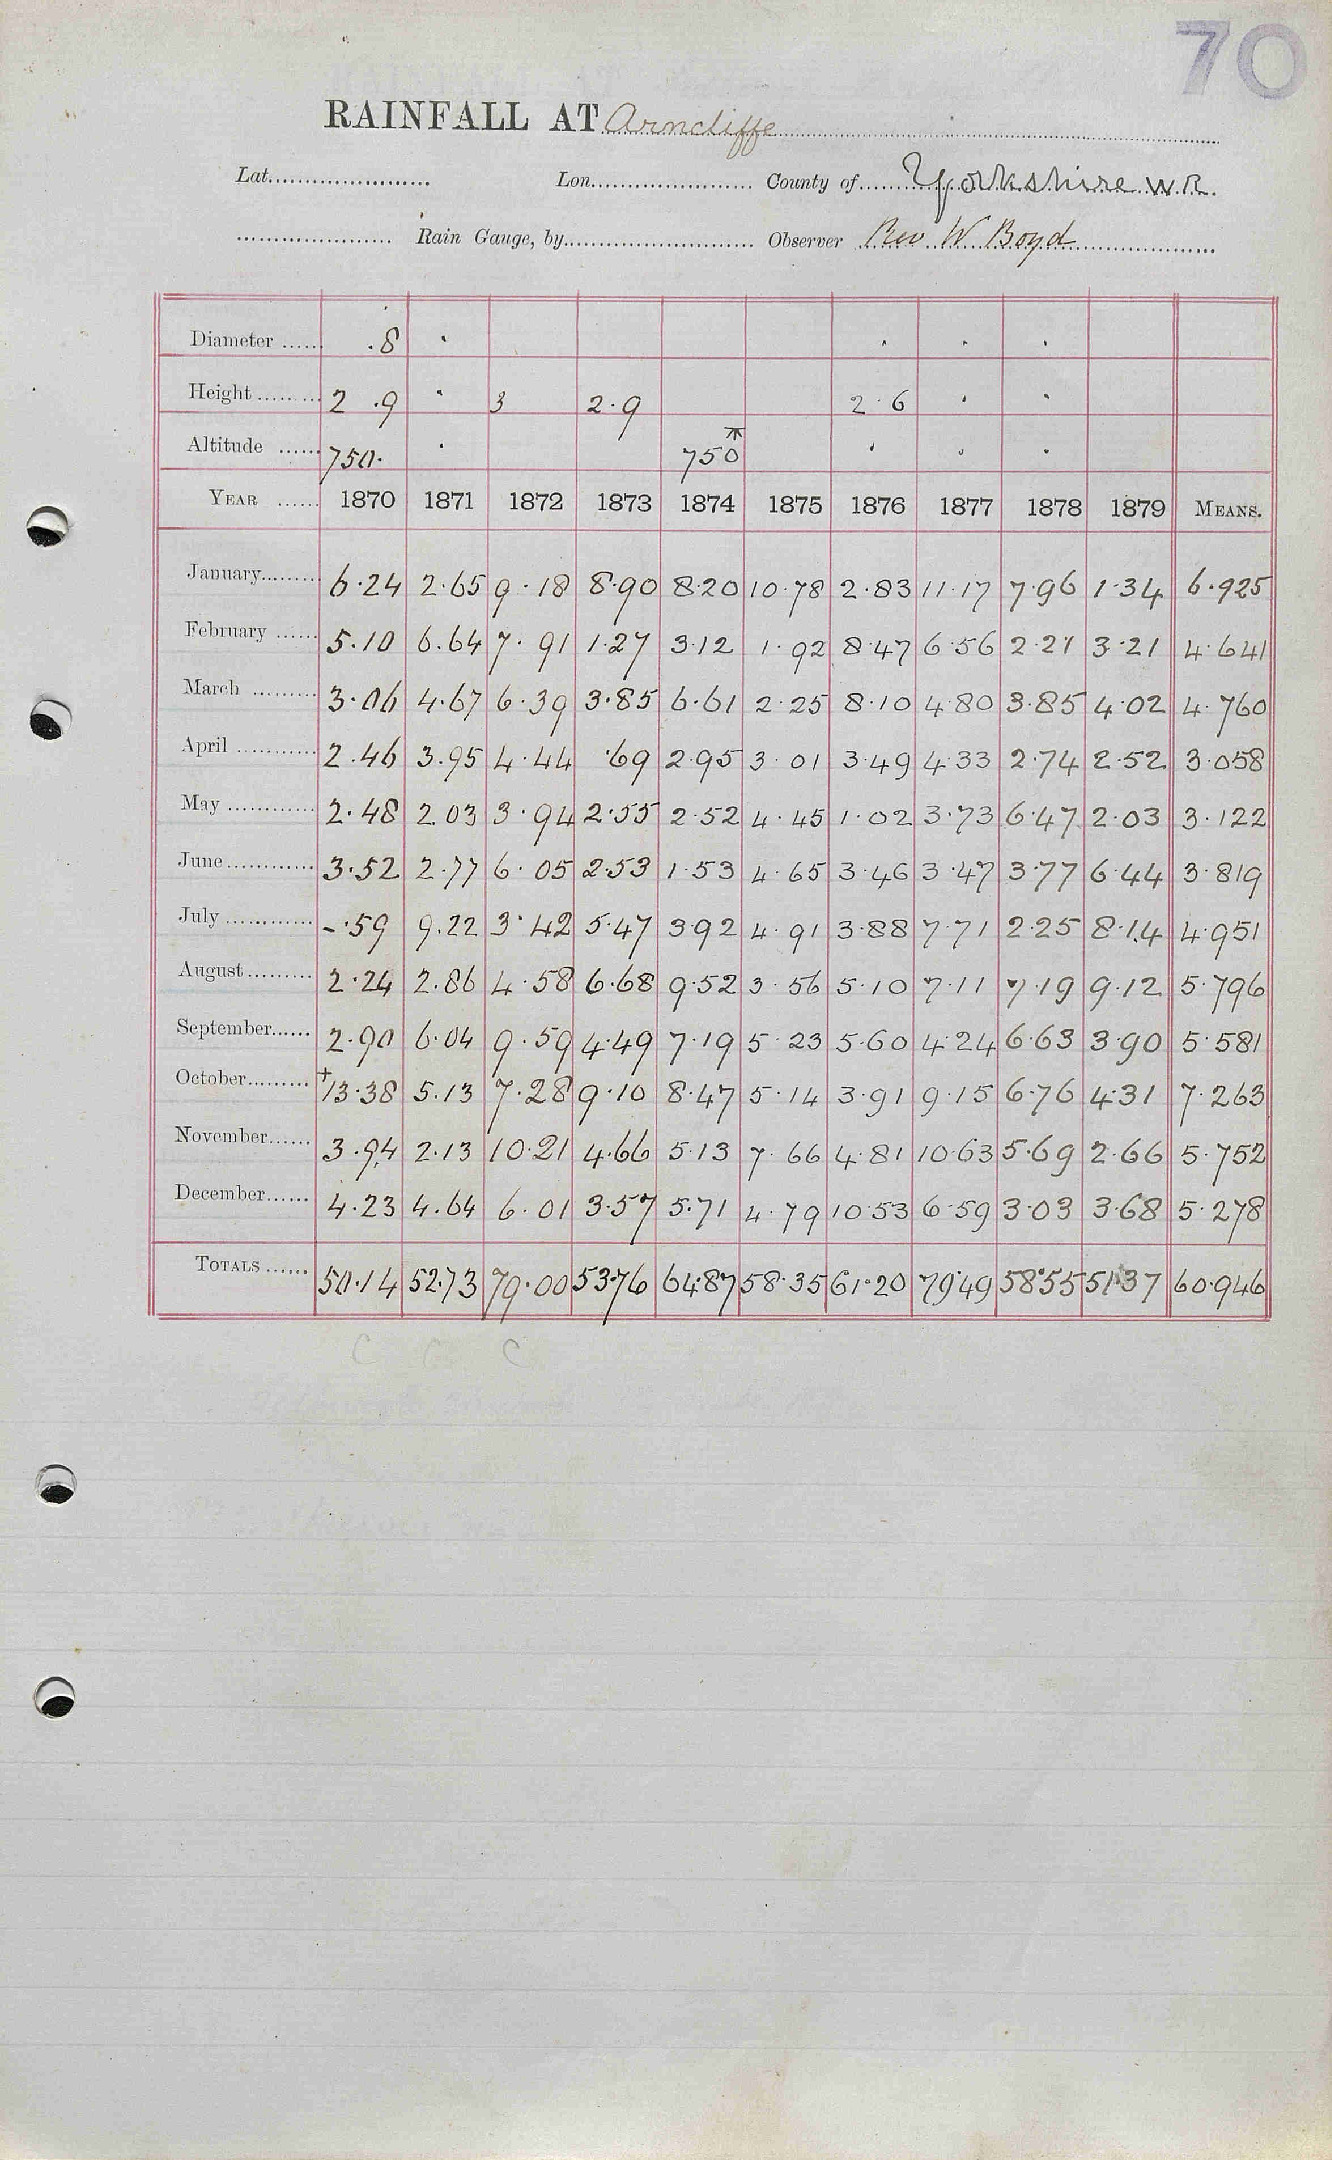 70
RAINFALL AT Arncliffe
Lat. Lon. County of Yorkshire W.R.
Rain Gauge, by Observer Rev W Boyd
Diameter .8
Height 2 .9 3 2.9 2.6
Altitude 750. 750
YEAR 1870 1871 1872 1873 1874 1875 1876 1877 1878 1879 MEANS.
January 6.24 2.65 9.18 8.90 8.20 10.78 2.83 11.17 7.96 1.34 6.925
February 5.10 6.64 7.91 1.27 3.12 1.92 8.47 6.56 2.21 3.21 4.641
March 3.06 4.67 6.39 3.85 6.61 2.25 8.10 4.80 3.85 4.02 4.760
April 2.46 3.95 4.44 .69 2.95 3.01 3.49 4.33 2.74 2.52 3.058
May 2.48 2.03 3.94 2.55 2.52 4.45 1.02 3.73 6.47 2.03 3.122
June 3.52 2.77 6.05 2.53 1.53 4.65 3.46 3.47 3.77 6.44 3.819
July -.59 9.22 3.42 5.47 3.92 4.91 3.88 7.71 2.25 8.14 4.951
August 2.24 2.86 4.58 6.68 9.52 3.56 5.10 7.11 7.19 9.12 5.796
September 2.90 6.04 9.59 4.49 7.19 5.23 5.60 4.24 6.63 3.90 5.581
October +13.38 5.13 7.28 9.10 8.47 5.14 3.91 9.15 6.76 4.31 7.263
November 3.94 2.13 10.21 4.66 5.13 7.66 4.81 10.63 5.69 2.66 5.752
December 4.23 4.64 6.01 3.57 5.71 4.79 10.53 6.59 3.03 3.68 5.278
TOTALS 50.14 52.73 79.00 53.76 64.87 58.35 61.20 79.49 58.55 51.37 60.946
C C C